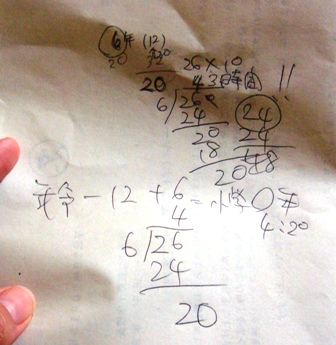 6年 (12)
20
20
26×10
43時間 !!
6)260
24
20
18
20
24
24
48
年令-12+6=小学○年
4:20
4
6)26
24
20